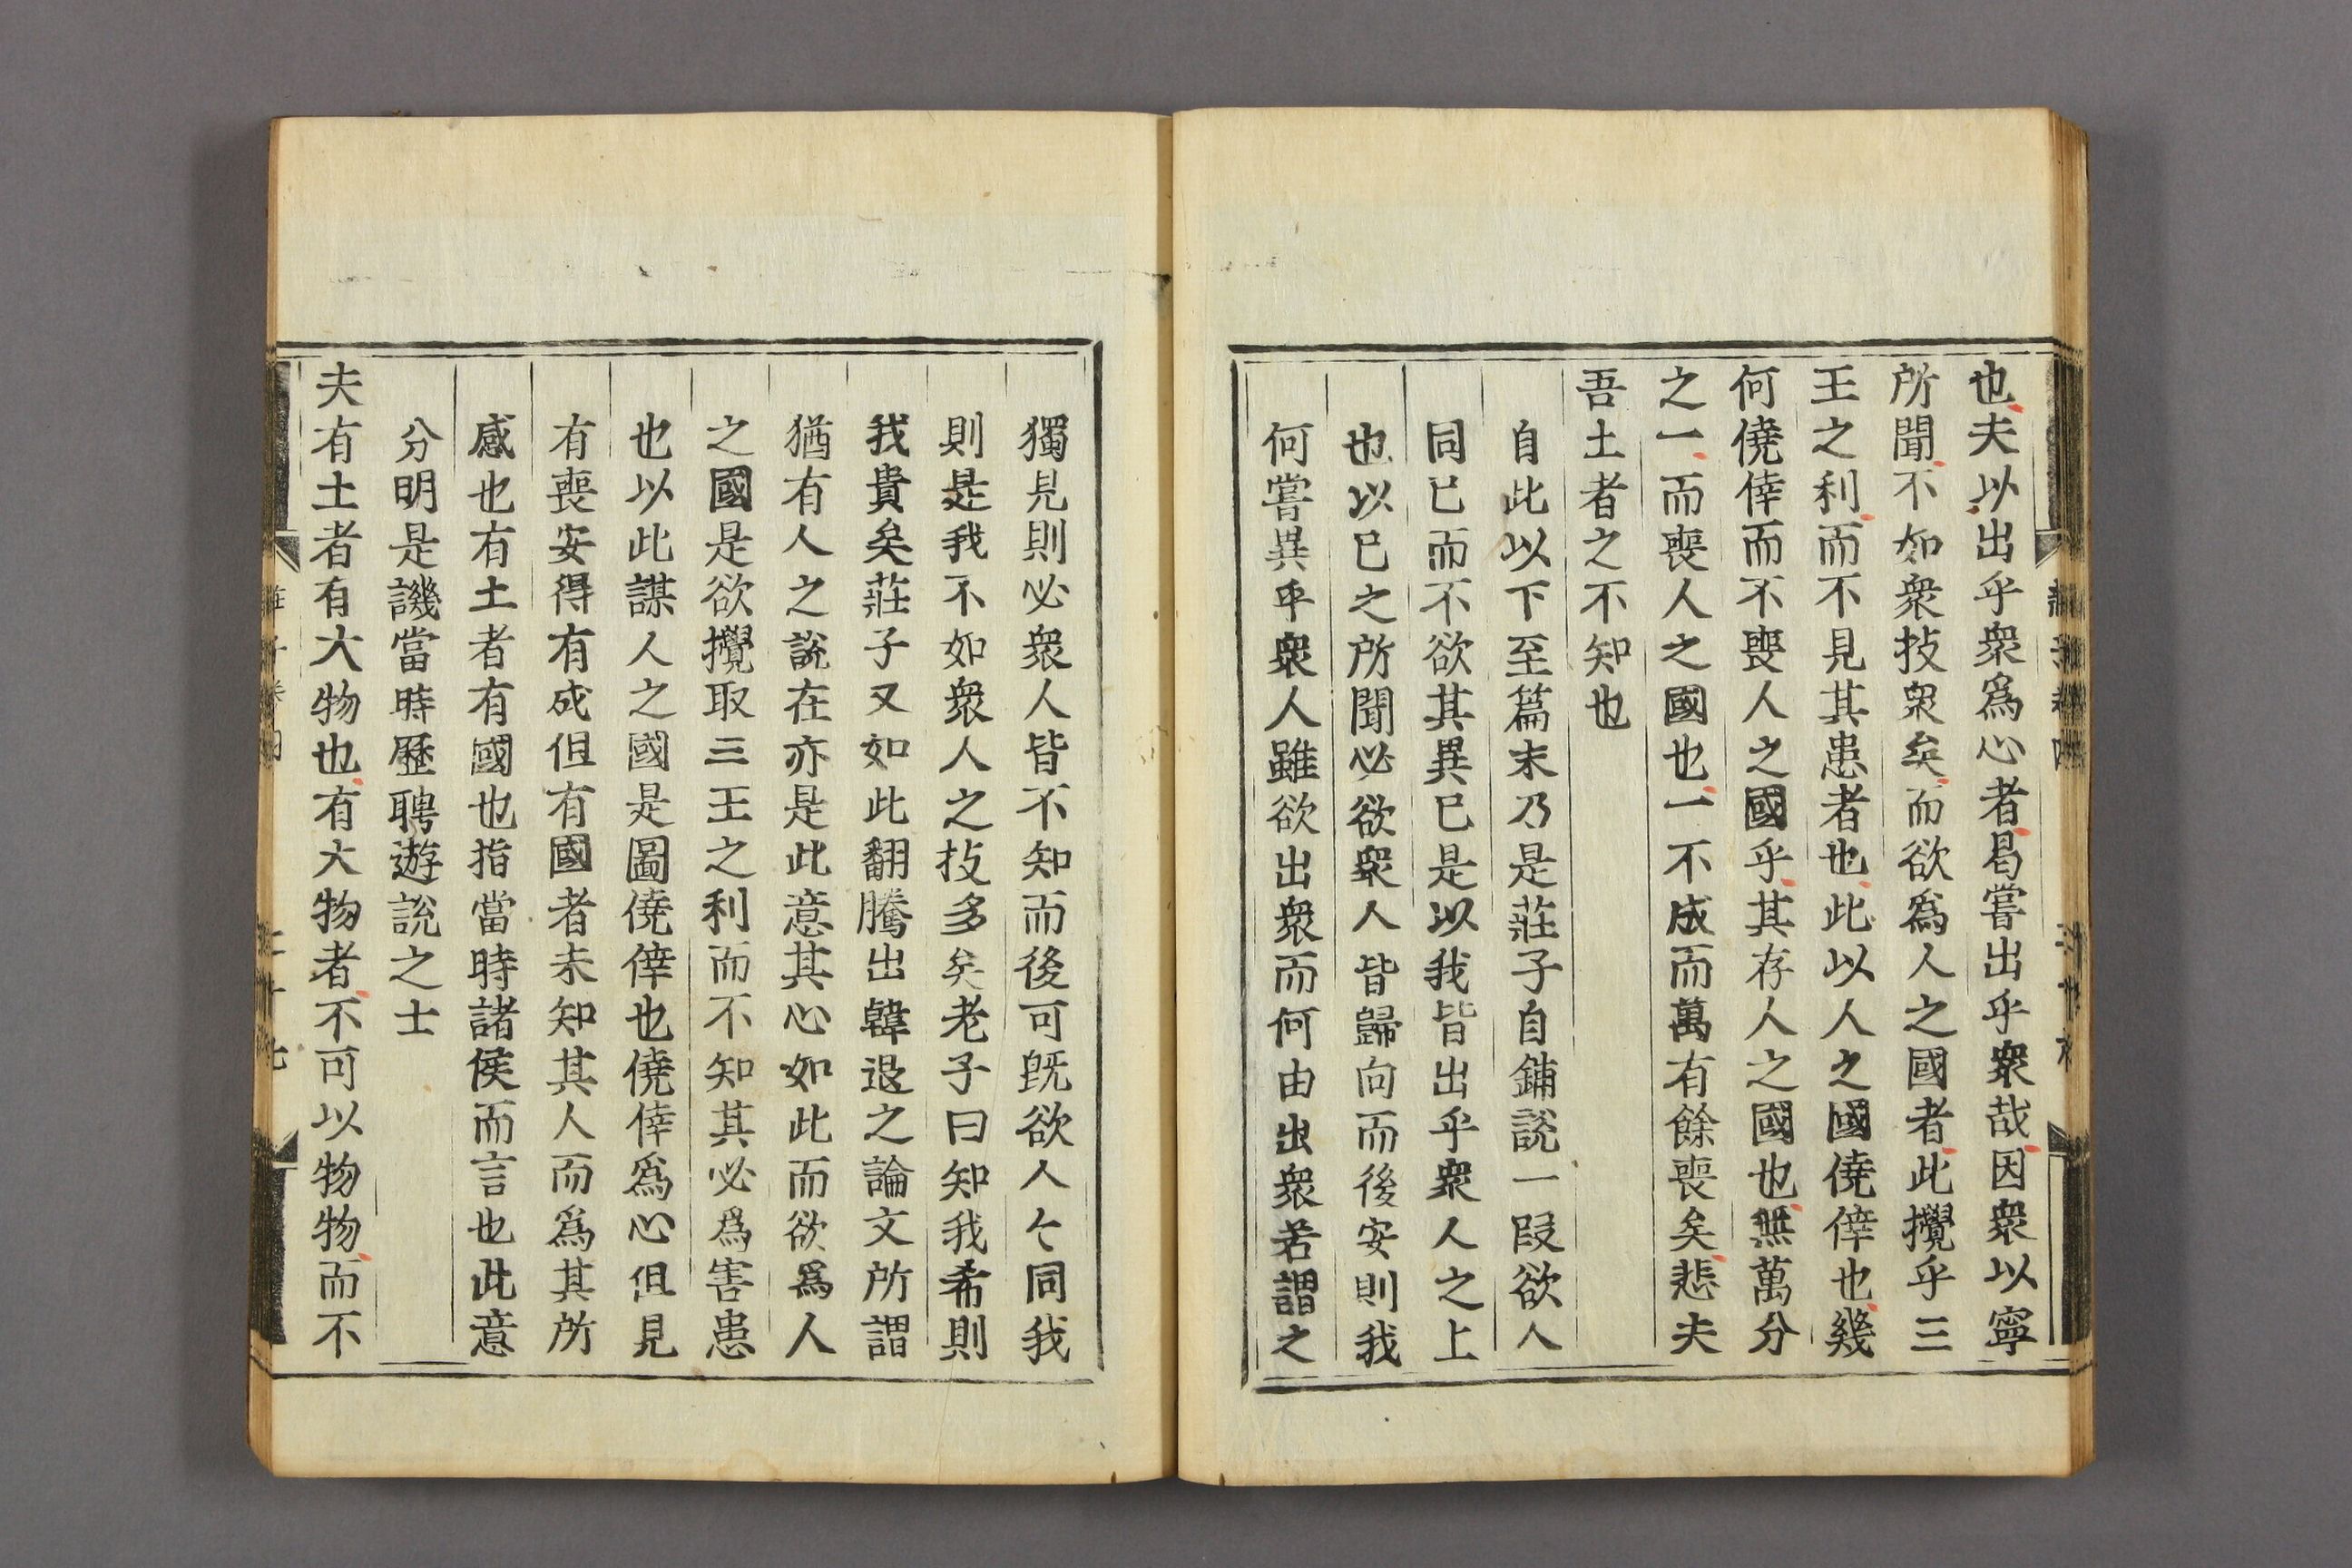 也夫以出乎衆爲心者曷嘗出乎衆哉因衆以寧
所聞不如衆技衆矣而欲爲人之國者此攬乎三
王之利而不見其患者也此以人之國僥倖也幾
何僥倖而不喪人之國乎其存人之國也無萬分
之一而喪人之國也一不成而萬有餘喪矣悲夫
吾土者之不知也
自此以下至篇末乃是莊子自鋪說一段欲人
同己而不欲其異己是以我皆出乎衆人之上
也以己之所聞必欲衆人皆歸向而後安則我
何嘗異乎衆人雖欲出衆而何由出衆若謂之
獨見則必衆人皆不知而後可旣欲人々同我
則是我不如衆人之技多矣老子曰知我希則
我貴矣莊子又如此翻騰出韓退之論文所謂
猶有人之說在亦是此意其心如此而欲爲人
之國是欲攬取三王之利而不知其必爲害患
也以此謀人之國是圖僥倖也僥倖爲心但見
有喪安得有成但有國者未知其人而爲其所
感也有土者有國也指當時諸侯而言也此意
分明是譏當時歷聘遊說之士
夫有土者有大物也有大物者不可以物物而不
莊子卷四
二十七